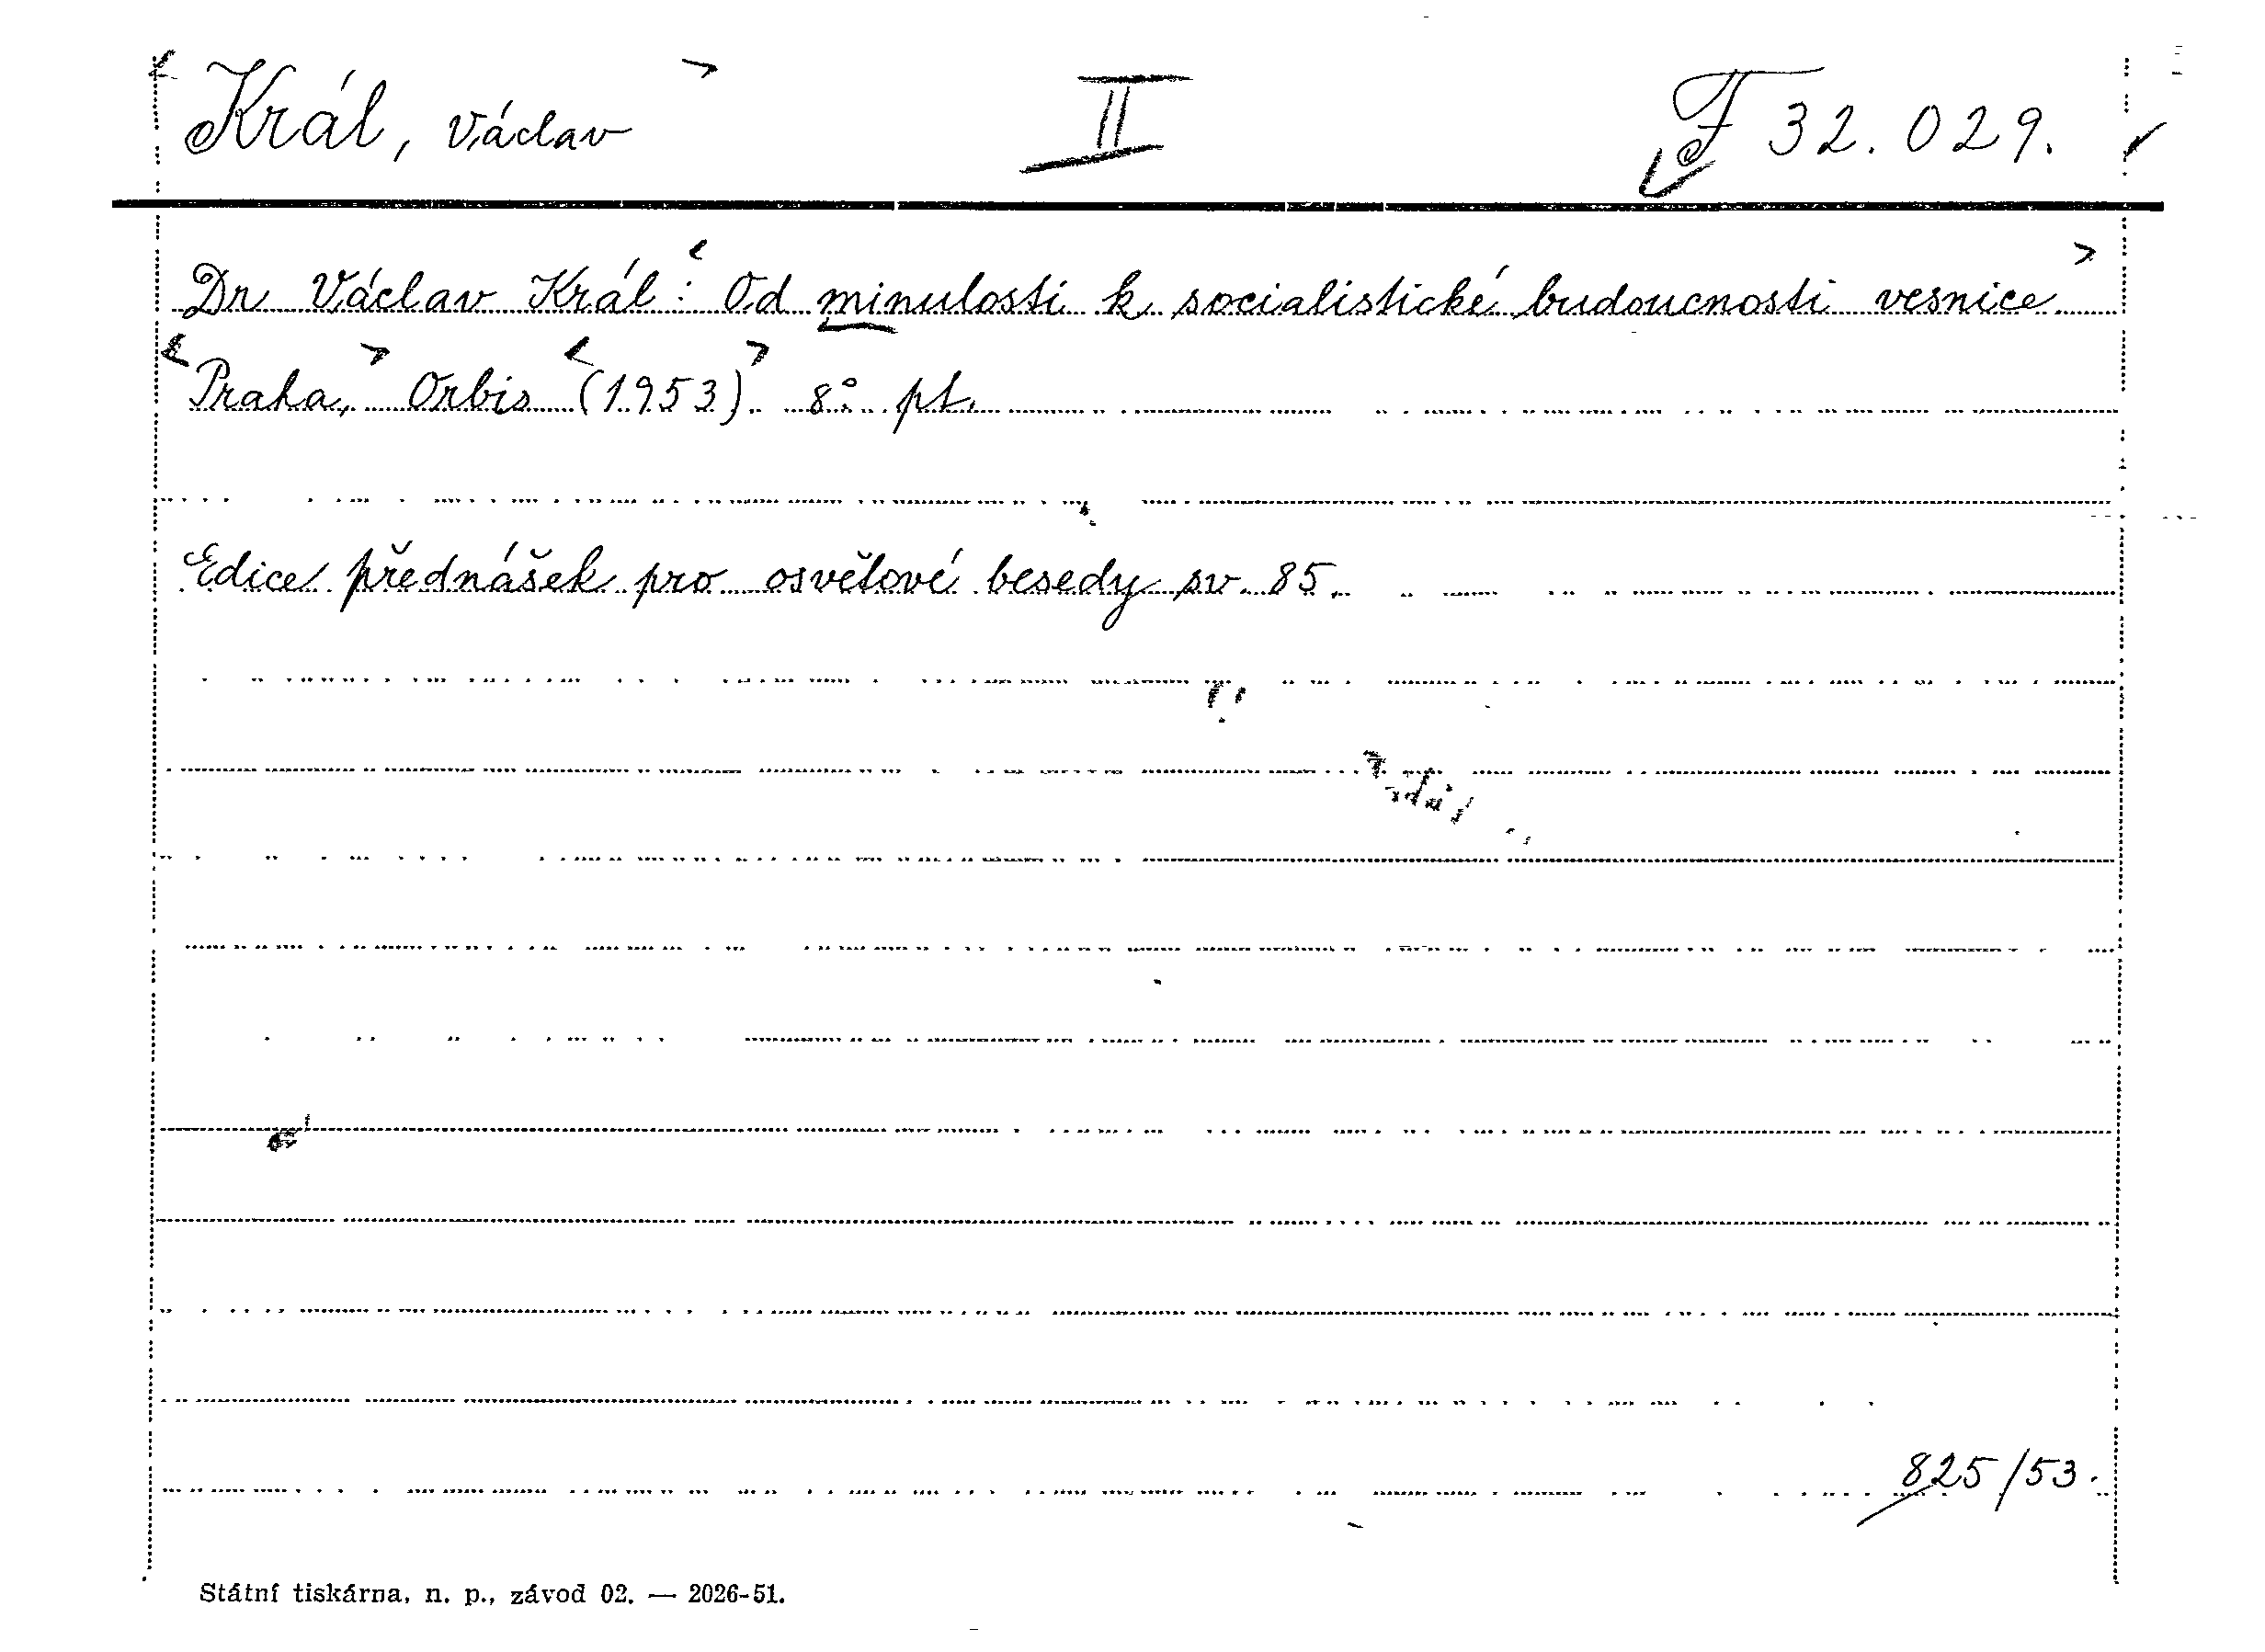 Král, Václav II F 32.029.
Dr Václav Král: Od minulosti k socialistické budoucnosti vesnice
Praha, Orbis (1953). 8° pt.
Edice přednášek pro osvětové besedy sv. 85.
825/53.
Státní tiskárna, n. p., závod 02. — 2026-51.